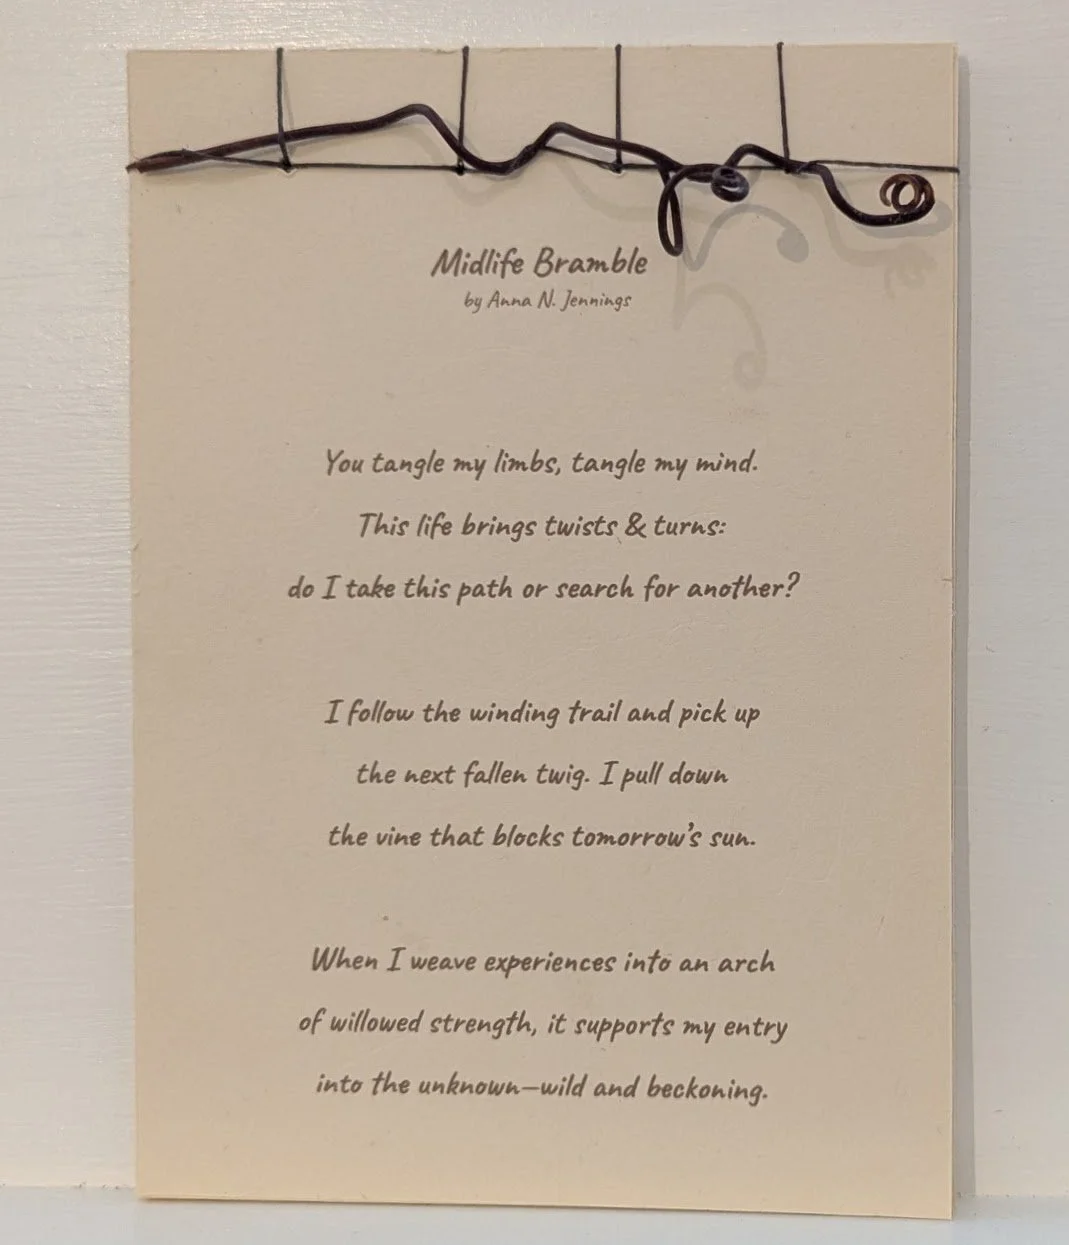 Midlife Bramble
by Anna N. Jennings
You tangle my limbs, tangle my mind.
This life brings twists & turns:
do I take this path or search for another?
I follow the winding trail and pick up
the next fallen twig. I pull down
the vine that blocks tomorrow’s sun.
When I weave experiences into an arch
of willowed strength, it supports my entry
into the unknown—wild and beckoning.